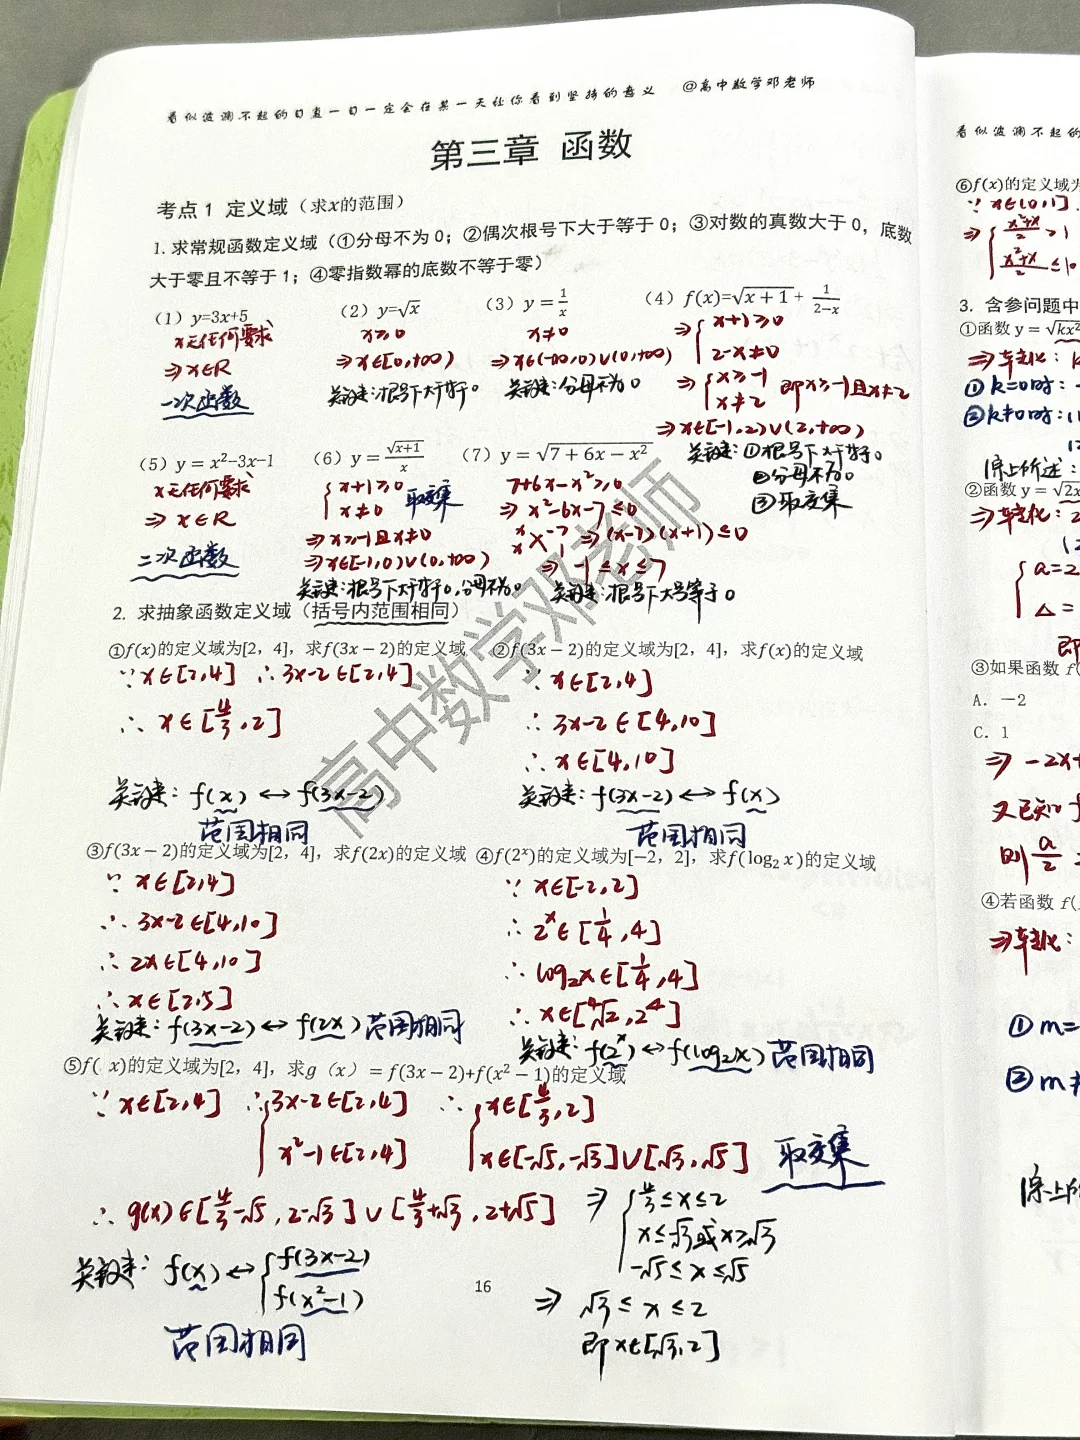 看似波澜不起的日复一日一定会在某一天让你看到坚持的意义 @高中数学邓老师
第三章 函数
考点1 定义域（求x的范围）
1.求常规函数定义域（①分母不为0；②偶次根号下大于等于0；③对数的真数大于0，底数
大于零且不等于1；④零指数幂的底数不等于零）
（1）y=3x+5
x无任何要求
⇒ x∈R
一次函数
（2）y=√x
x≥0
⇒ x∈[0,+∞)
关键：根号下大于等于0
（3）y = 1/x
x≠0
⇒ x∈(-∞,0)∪(0,+∞)
关键：分母不为0
（4）f(x)=√(x+1) + 1/(2−x)
⇒ { x+1≥0
2-x≠0
⇒ { x≥-1
x≠2 即x≥-1且x≠2
⇒ x∈[-1,2)∪(2,+∞)
关键：①根号下大于等于0
②分母不为0
③取交集
（5）y = x²−3x−1
x无任何要求
⇒ x∈R
二次函数
（6）y = √(x+1)/x
{ x+1≥0
x≠0 取交集
⇒ x≥-1且x≠0
⇒ x∈[-1,0)∪(0,+∞)
关键：根号下大于等于0，分母不为0
（7）y = √(7 + 6x − x²)
7+6x-x²≥0
⇒ x²-6x-7≤0
x -7
x 1 ⇒ (x-7)(x+1)≤0
⇒ -1≤x≤7
关键：根号下大号等于0
2. 求抽象函数定义域（括号内范围相同）
①f(x)的定义域为[2，4]，求f(3x − 2)的定义域
∵ x∈[2,4] ∴ 3x-2∈[2,4]
∴ x∈[4/3,2]
关键：f(x)↔f(3x-2)
范围相同
②f(3x − 2)的定义域为[2，4]，求f(x)的定义域
∵ x∈[2,4]
∴ 3x-2∈[4,10]
∴ x∈[4,10]
关键：f(3x-2)↔f(x)
范围相同
③f(3x − 2)的定义域为[2，4]，求f(2x)的定义域
∵ x∈[2,4]
∴ 3x-2∈[4,10]
∴ 2x∈[4,10]
∴ x∈[2,5]
关键：f(3x-2)↔f(2x) 范围相同
④f(2ˣ)的定义域为[−2，2]，求f(log₂ x)的定义域
∵ x∈[-2,2]
∴ 2ˣ∈[1/4,4]
∴ log₂x∈[1/4,4]
∴ x∈[⁴√2,2⁴]
关键：f(2ˣ)↔f(log₂x) 范围相同
⑤f( x)的定义域为[2，4]，求g（x）= f(3x − 2)+f(x² − 1)的定义域
∵ x∈[2,4] ∴ { 3x-2∈[2,4] ∴ { x∈[4/3,2]
x²-1∈[2,4] x∈[-√5,-√3]∪[√3,√5] 取交集
∴ g(x)∈[4/3-√5,2-√3]∪[4/3+√3,2+√5]
⇒ { 4/3≤x≤2
x≤-√3或x≥√3
-√5≤x≤√5
⇒ √3≤x≤2
即x∈[√3,2]
关键：f(x)↔{ f(3x-2)
f(x²-1)
范围相同
16
看似波澜不起的
⑥f(x)的定义域为
∵ x∈(0,1]
⇒ { (x²+x)/2 >1
(x²+x)/2 ≤10
3. 含参问题中
①函数 y = √kx²
⇒
①k=0时：
②k≠0时：
综上所述：
②函数 y = √2x
⇒
{ a=2
Δ=
即
③如果函数 f(
A. −2
C. 1
⇒ -2x+
又已知f
则 a/2
④若函数 f(
⇒
① m=
② m≠
综上所
高中数学邓老师